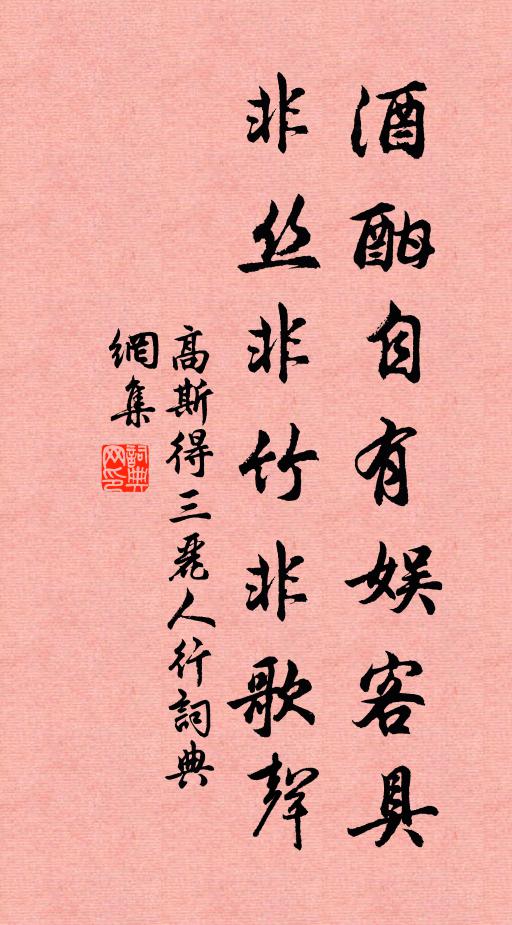 酒酣自有娱客具
非丝非竹非歌聲
高斯得三麗人行詞典
網集
詞典
网印